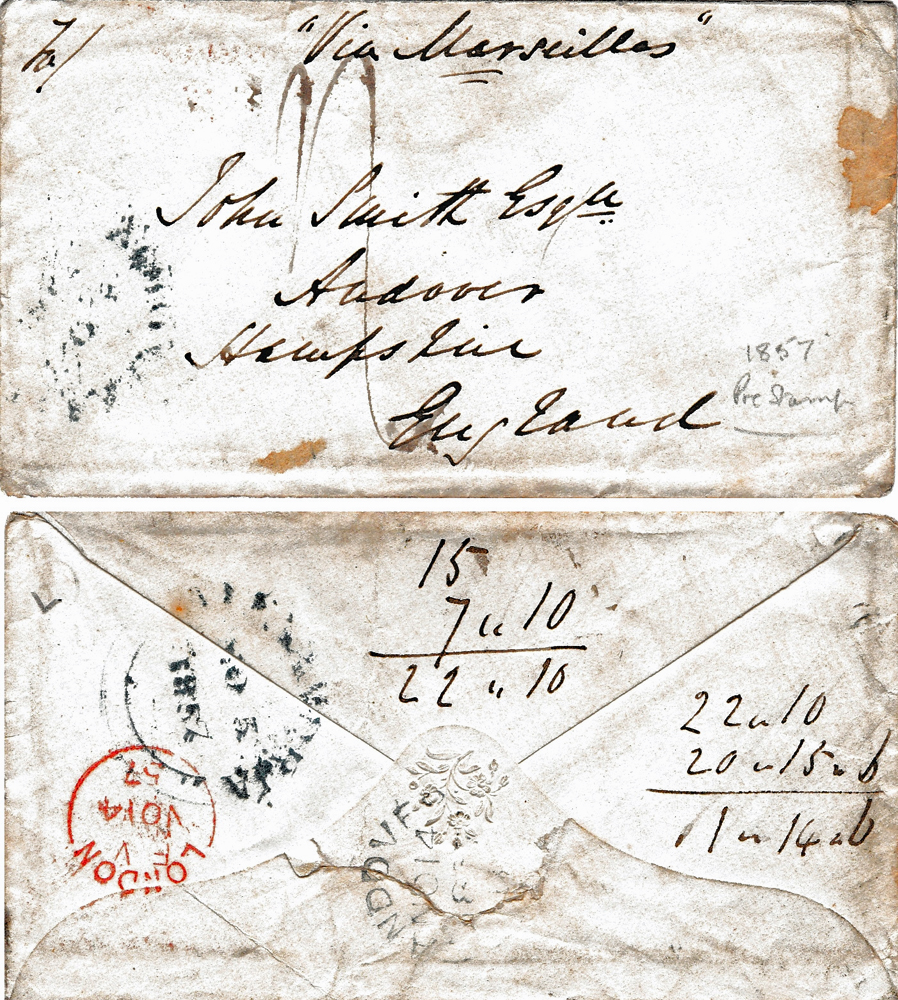 "Via Marseilles"
John Smith Esqre
Andover
Hampshire
England
1857
Pre Stamp
15
7 " 10
22 " 10
22 " 10
20 " 15 " 6
1 " 14 " 6
LONDON
NO 14
57
ANDOVER
NO 14